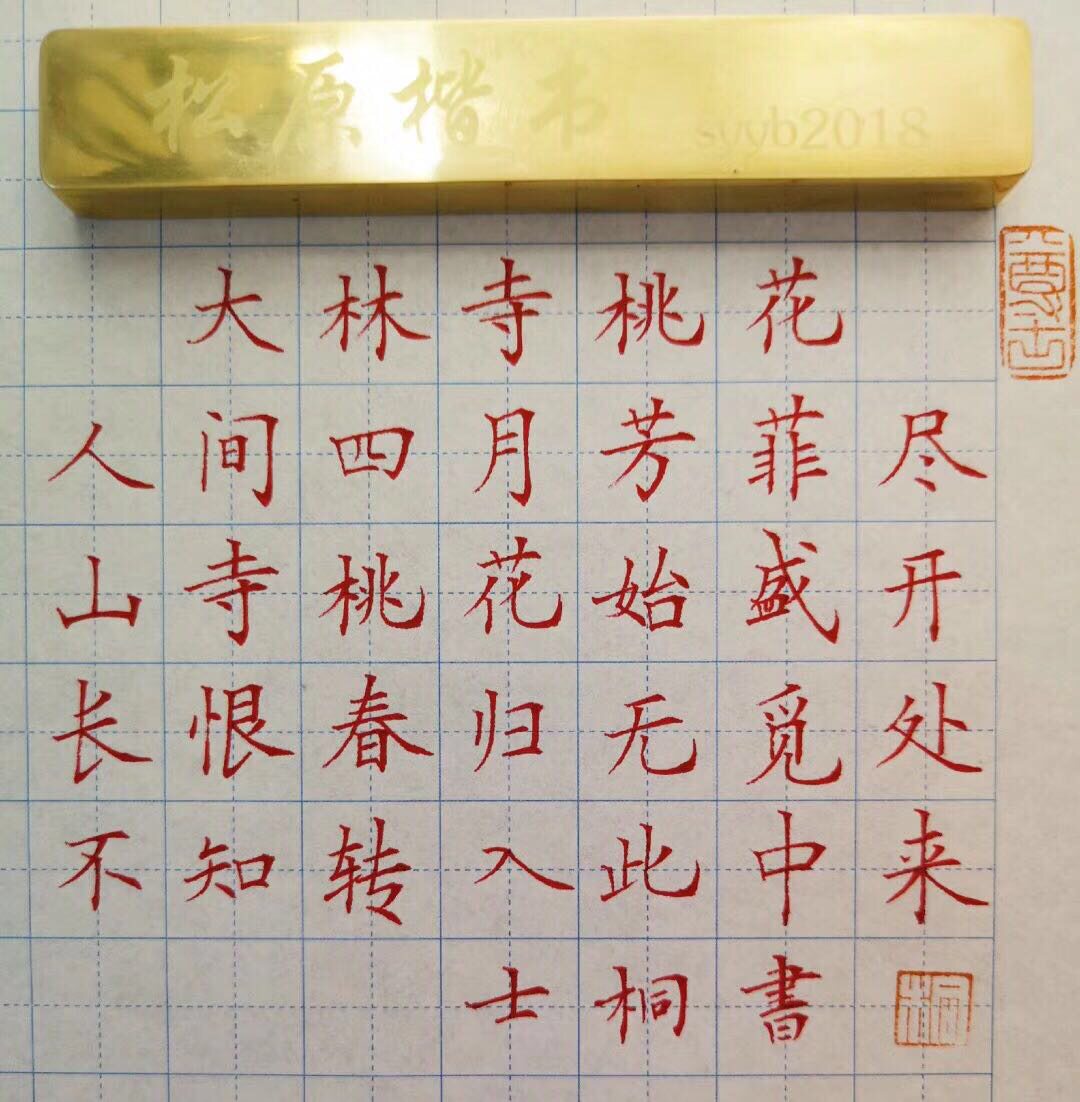 松原楷书
syyb2018
大林寺桃花
人间四月芳菲尽
山寺桃花始盛开
长恨春归无觅处
不知转入此中来
士桐書
桐